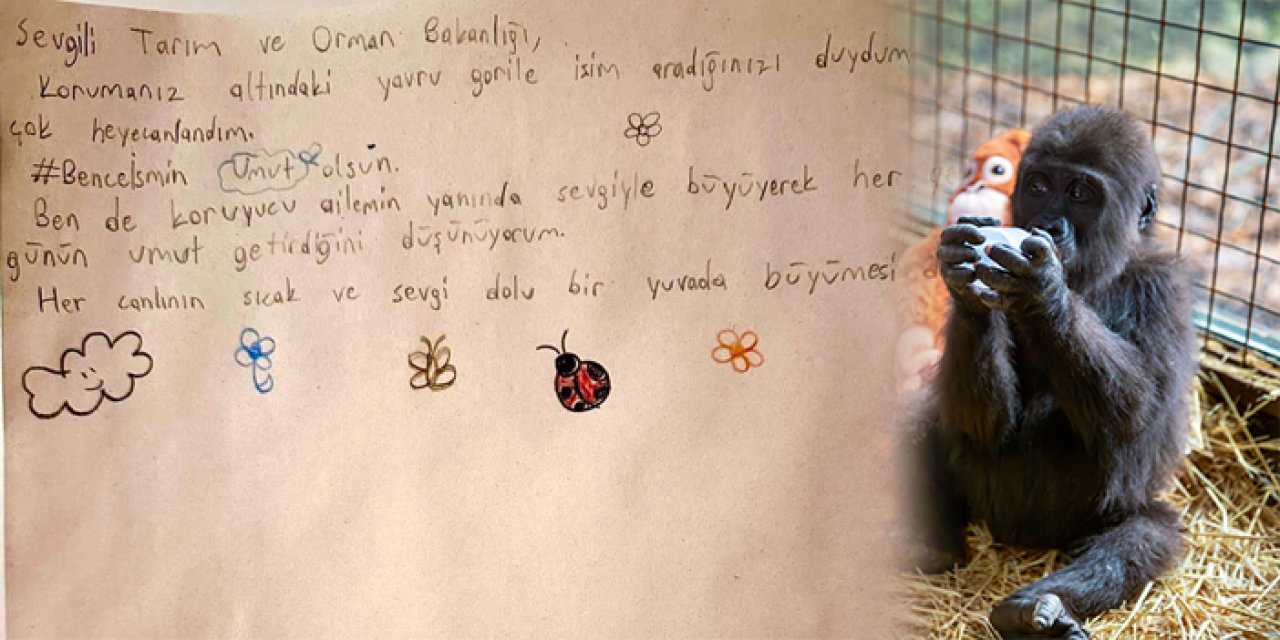 Sevgili Tarım ve Orman Bakanlığı,
Korumanız altındaki yavru gorile isim aradığınızı duydum
çok heyecanlandım.
#BenceIsmin Umut olsun.
Ben de koruyucu ailemin yanında sevgiyle büyüyerek her
günün umut getirdiğini düşünüyorum.
Her canlının sıcak ve sevgi dolu bir yuvada büyümesi